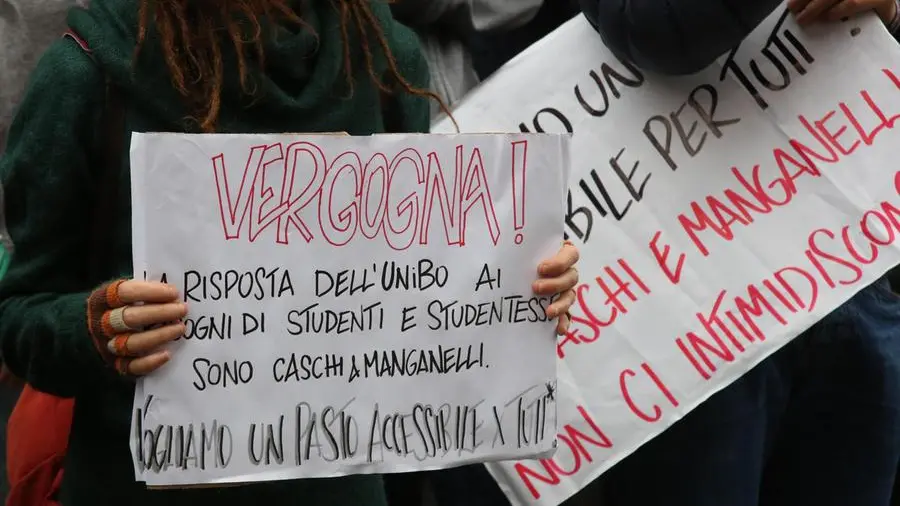 VERGOGNA!
LA RISPOSTA DELL'UNIBO AI
OGNI DI STUDENTI E STUDENTESSE
SONO CASCHI & MANGANELLI.
VOGLIAMO UN PASTO ACCESSIBILE X TUTT*
MO UN
IBILE PER TUTTI
CASCHI E MANGANELLI
NON CI INTIMIDISCON